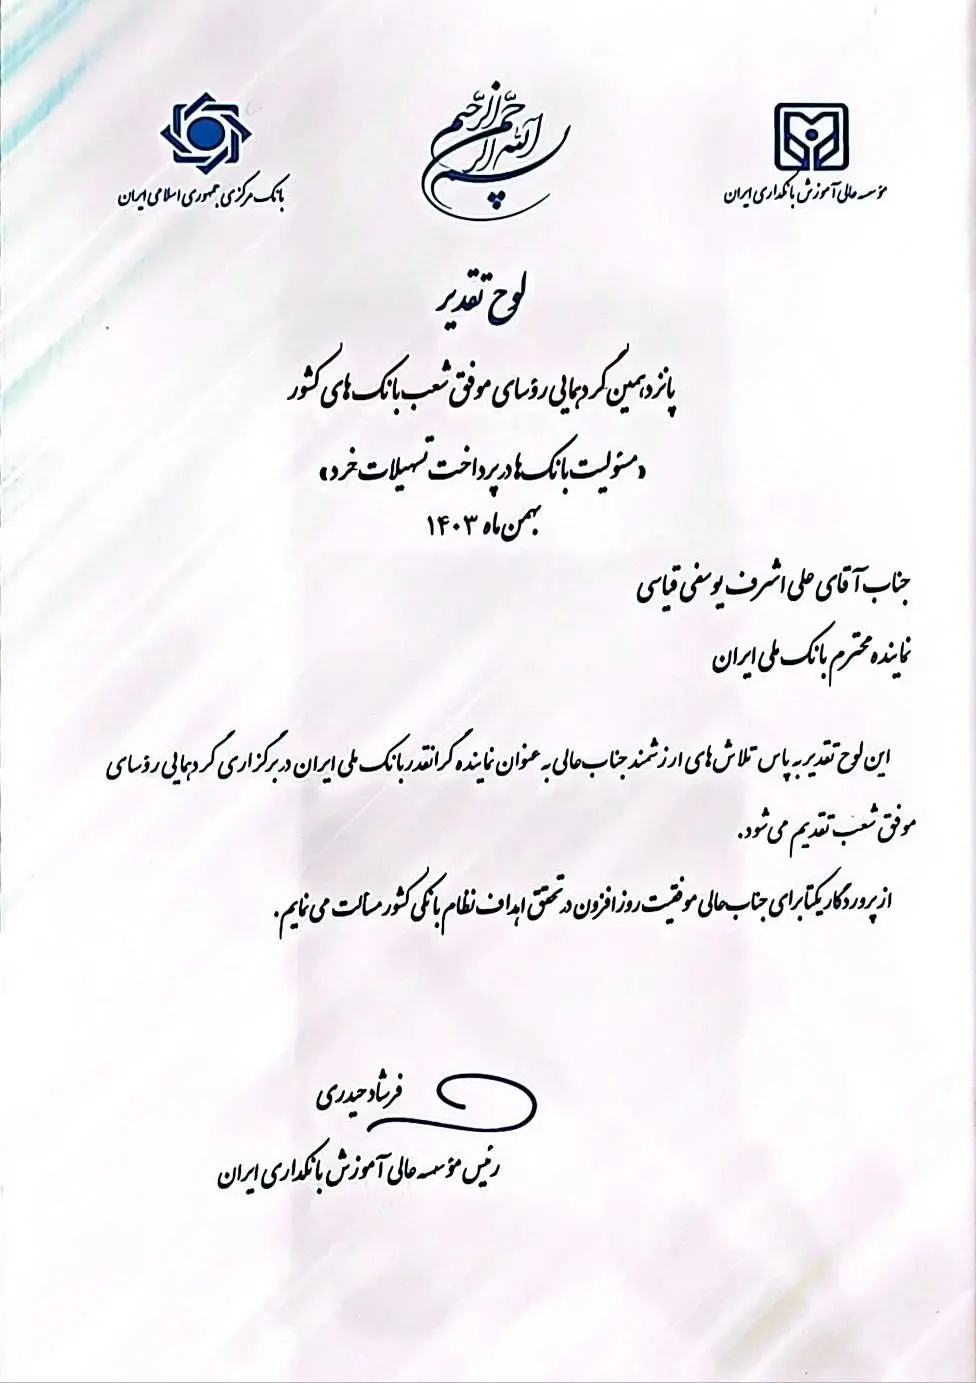 بسم الله الرحمن الرحیم
مؤسسه عالی آموزش بانکداری ایران
بانک مرکزی جمهوری اسلامی ایران
لوح تقدیر
پانزدهمین گردهمایی رؤسای موفق شعب بانک های کشور
«مسئولیت بانک ها در پرداخت تسهیلات خرد»
بهمن ماه ۱۴۰۳
جناب آقای علی اشرف یوسفی قیاسی
نماینده محترم بانک ملی ایران
این لوح تقدیر به پاس تلاش های ارزشمند جناب عالی به عنوان نماینده گرانقدر بانک ملی ایران در برگزاری گردهمایی رؤسای
موفق شعب تقدیم می شود.
از پروردگار یکتا برای جناب عالی موفقیت روز افزون در تحقق اهداف نظام بانکی کشور مسألت می نمایم.
فرشاد حیدری
رئیس مؤسسه عالی آموزش بانکداری ایران